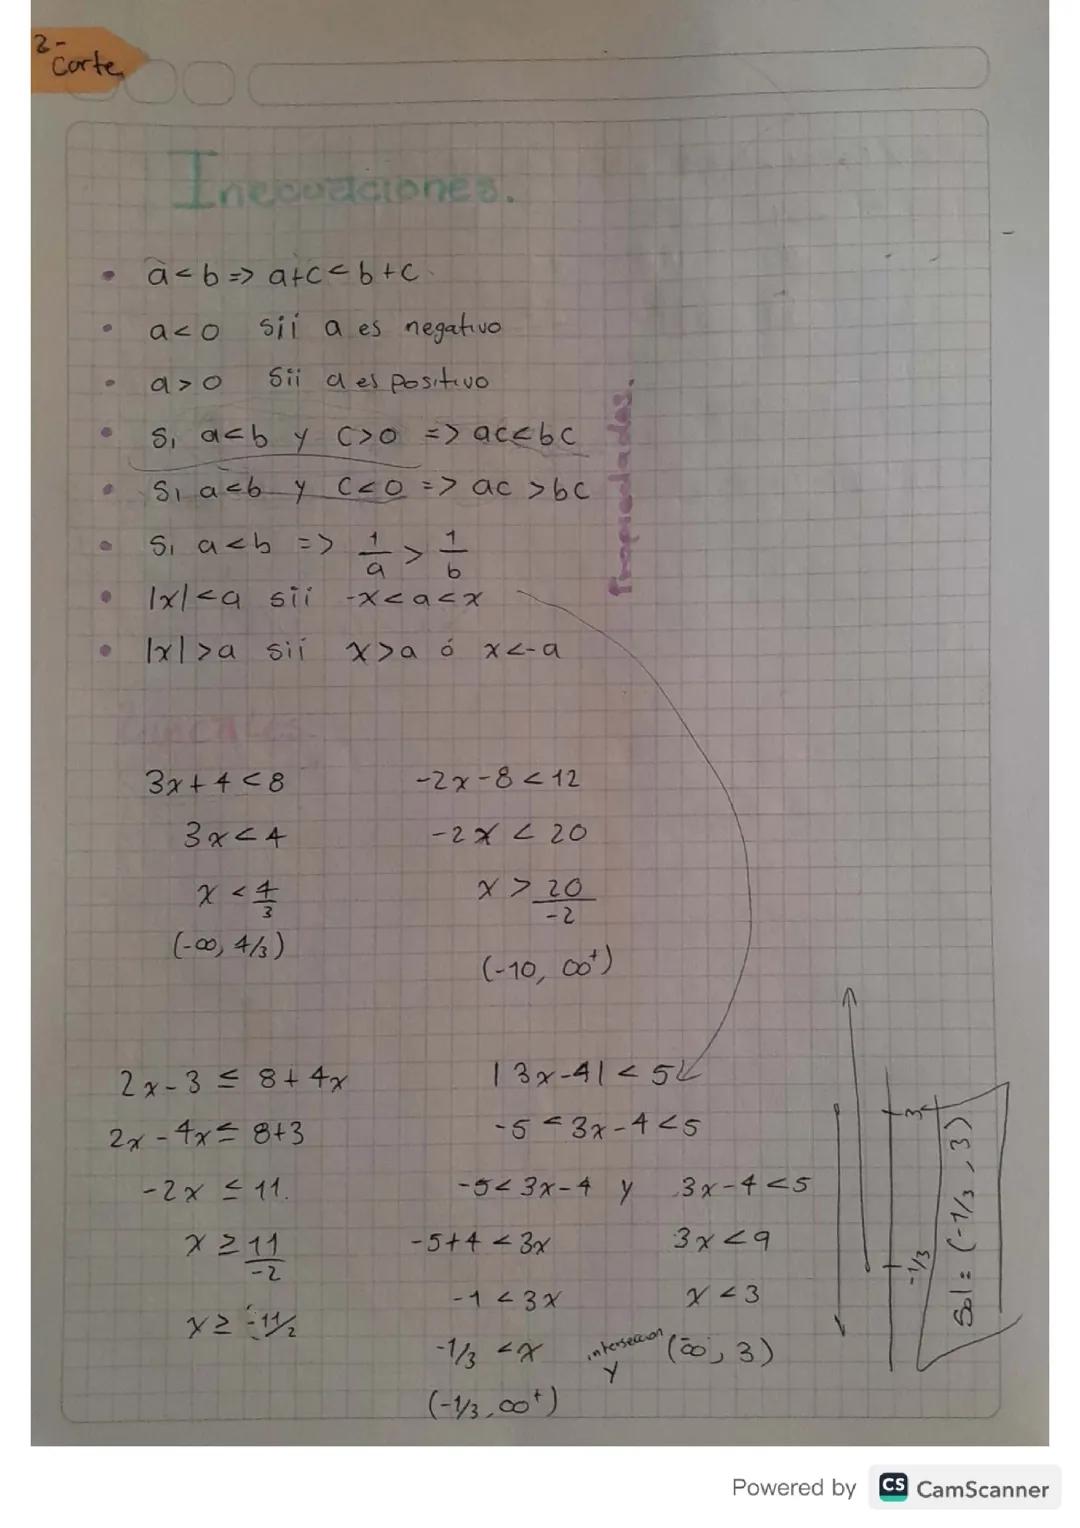 2-
Corte
Inecuaciones.
• a<b => a+c<b+c
• a<0 sii a es negativo
• a>0 sii a es positivo
• Si a<b y c>0 => ac<bc
• Si a<b y c<0 => ac >bc
• Si a<b => 1/a > 1/b
• |x|<a sii -x<a<x
• |x|>a sii x>a ó x<-a
Propiedades.
Lineales.
3x+4<8
3x<4
x<4/3
(-∞, 4/3)
-2x-8<12
-2x<20
x> 20/-2
(-10, ∞⁺)
2x-3 ≤ 8+4x
2x-4x≤ 8+3
-2x ≤ 11.
x ≥ 11/-2
x≥ -11/2
|3x-4| < 5
-5 < 3x-4 <5
-5< 3x-4 y 3x-4<5
-5+4 <3x 3x<9
-1 <3x x <3
-1/3 <x intersección y (-∞, 3)
(-1/3, ∞⁺)
3
-1/3
Sol = (-1/3, 3)
Powered by CS CamScanner